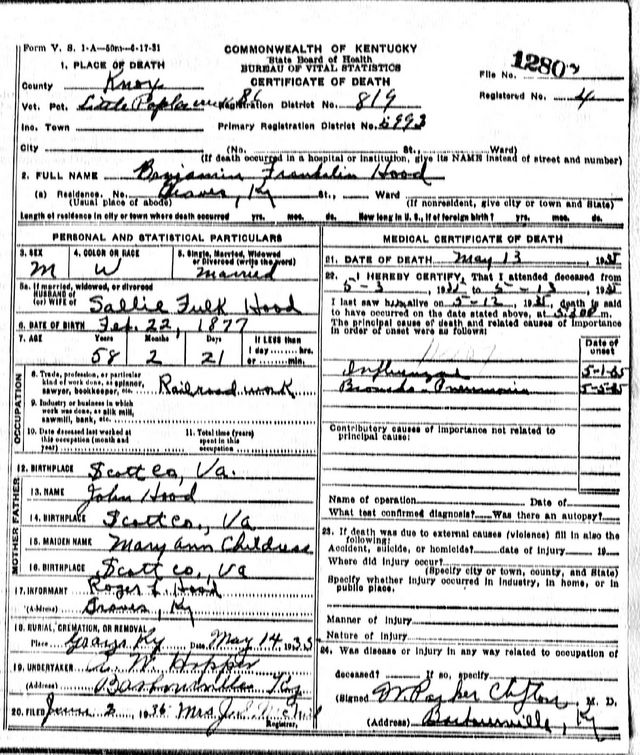 Form V. S. 1-A—50m—6-17-31
COMMONWEALTH OF KENTUCKY
State Board of Health
BUREAU OF VITAL STATISTICS
CERTIFICATE OF DEATH
File No. 1280
Registered No. 4
1. PLACE OF DEATH
County Knox
Vot. Pct. Little Poplar Registration District No. 819
Inc. Town Primary Registration District No. 5993
City (No. St., Ward)
(If death occurred in a hospital or institution, give its NAME instead of street and number)
2. FULL NAME Benjamin Franklin Hood
(a) Residence. No. Ky St., Ward
(Usual place of abode) (If nonresident, give city or town and State)
Length of residence in city or town where death occurred yrs. mos. ds. How long in U. S., if of foreign birth? yrs. mos. ds.
PERSONAL AND STATISTICAL PARTICULARS
3. SEX 4. COLOR OR RACE 5. Single, Married, Widowed or Divorced (write the word)
M W Married
5a. If married, widowed, or divorced
HUSBAND of
(or) WIFE of Sallie Fulk Hood
6. DATE OF BIRTH Feb. 22, 1877
7. AGE Years Months Days If LESS than
58 2 21 1 day hrs. or min.
OCCUPATION
8. Trade, profession, or particular kind of work done, as spinner, sawyer, bookkeeper, etc. Railroad work
9. Industry or business in which work was done, as silk mill, sawmill, bank, etc.
10. Date deceased last worked at this occupation (month and year)
11. Total time (years) spent in this occupation
12. BIRTHPLACE Scott Co, Va.
FATHER
13. NAME John Hood
14. BIRTHPLACE Scott Co., Va
MOTHER
15. MAIDEN NAME Mary Ann Childress
16. BIRTHPLACE Scott Co, Va
17. INFORMANT Roger L. Hood
(Address) Ky
18. BURIAL, CREMATION, OR REMOVAL
Place Ky Date May 14, 1935
19. UNDERTAKER A. W. Hopper
(Address) Barbourville Ky
20. FILED June 2, 1936 Mrs. J.
Registrar.
MEDICAL CERTIFICATE OF DEATH
21. DATE OF DEATH May 13, 1935
22. I HEREBY CERTIFY, That I attended deceased from
5-3, 1935 to 5-13, 1935
I last saw him alive on 5-12, 1935, death is said
to have occurred on the date stated above, at m.
The principal cause of death and related causes of importance
in order of onset were as follows:
Date of onset
Influenza 5-1-35
Broncho-Pneumonia 5-5-35
Contributory causes of importance not related to
principal cause:
Name of operation Date of
What test confirmed diagnosis? Was there an autopsy?
23. If death was due to external causes (violence) fill in also the
following:
Accident, suicide, or homicide? date of injury 19
Where did injury occur?
(Specify city or town, county, and State)
Specify whether injury occurred in industry, in home, or in
public place.
Manner of injury
Nature of injury
24. Was disease or injury in any way related to occupation of
deceased? If so, specify
(Signed) Parker Clifton, M. D.
(Address) Barbourville, Ky